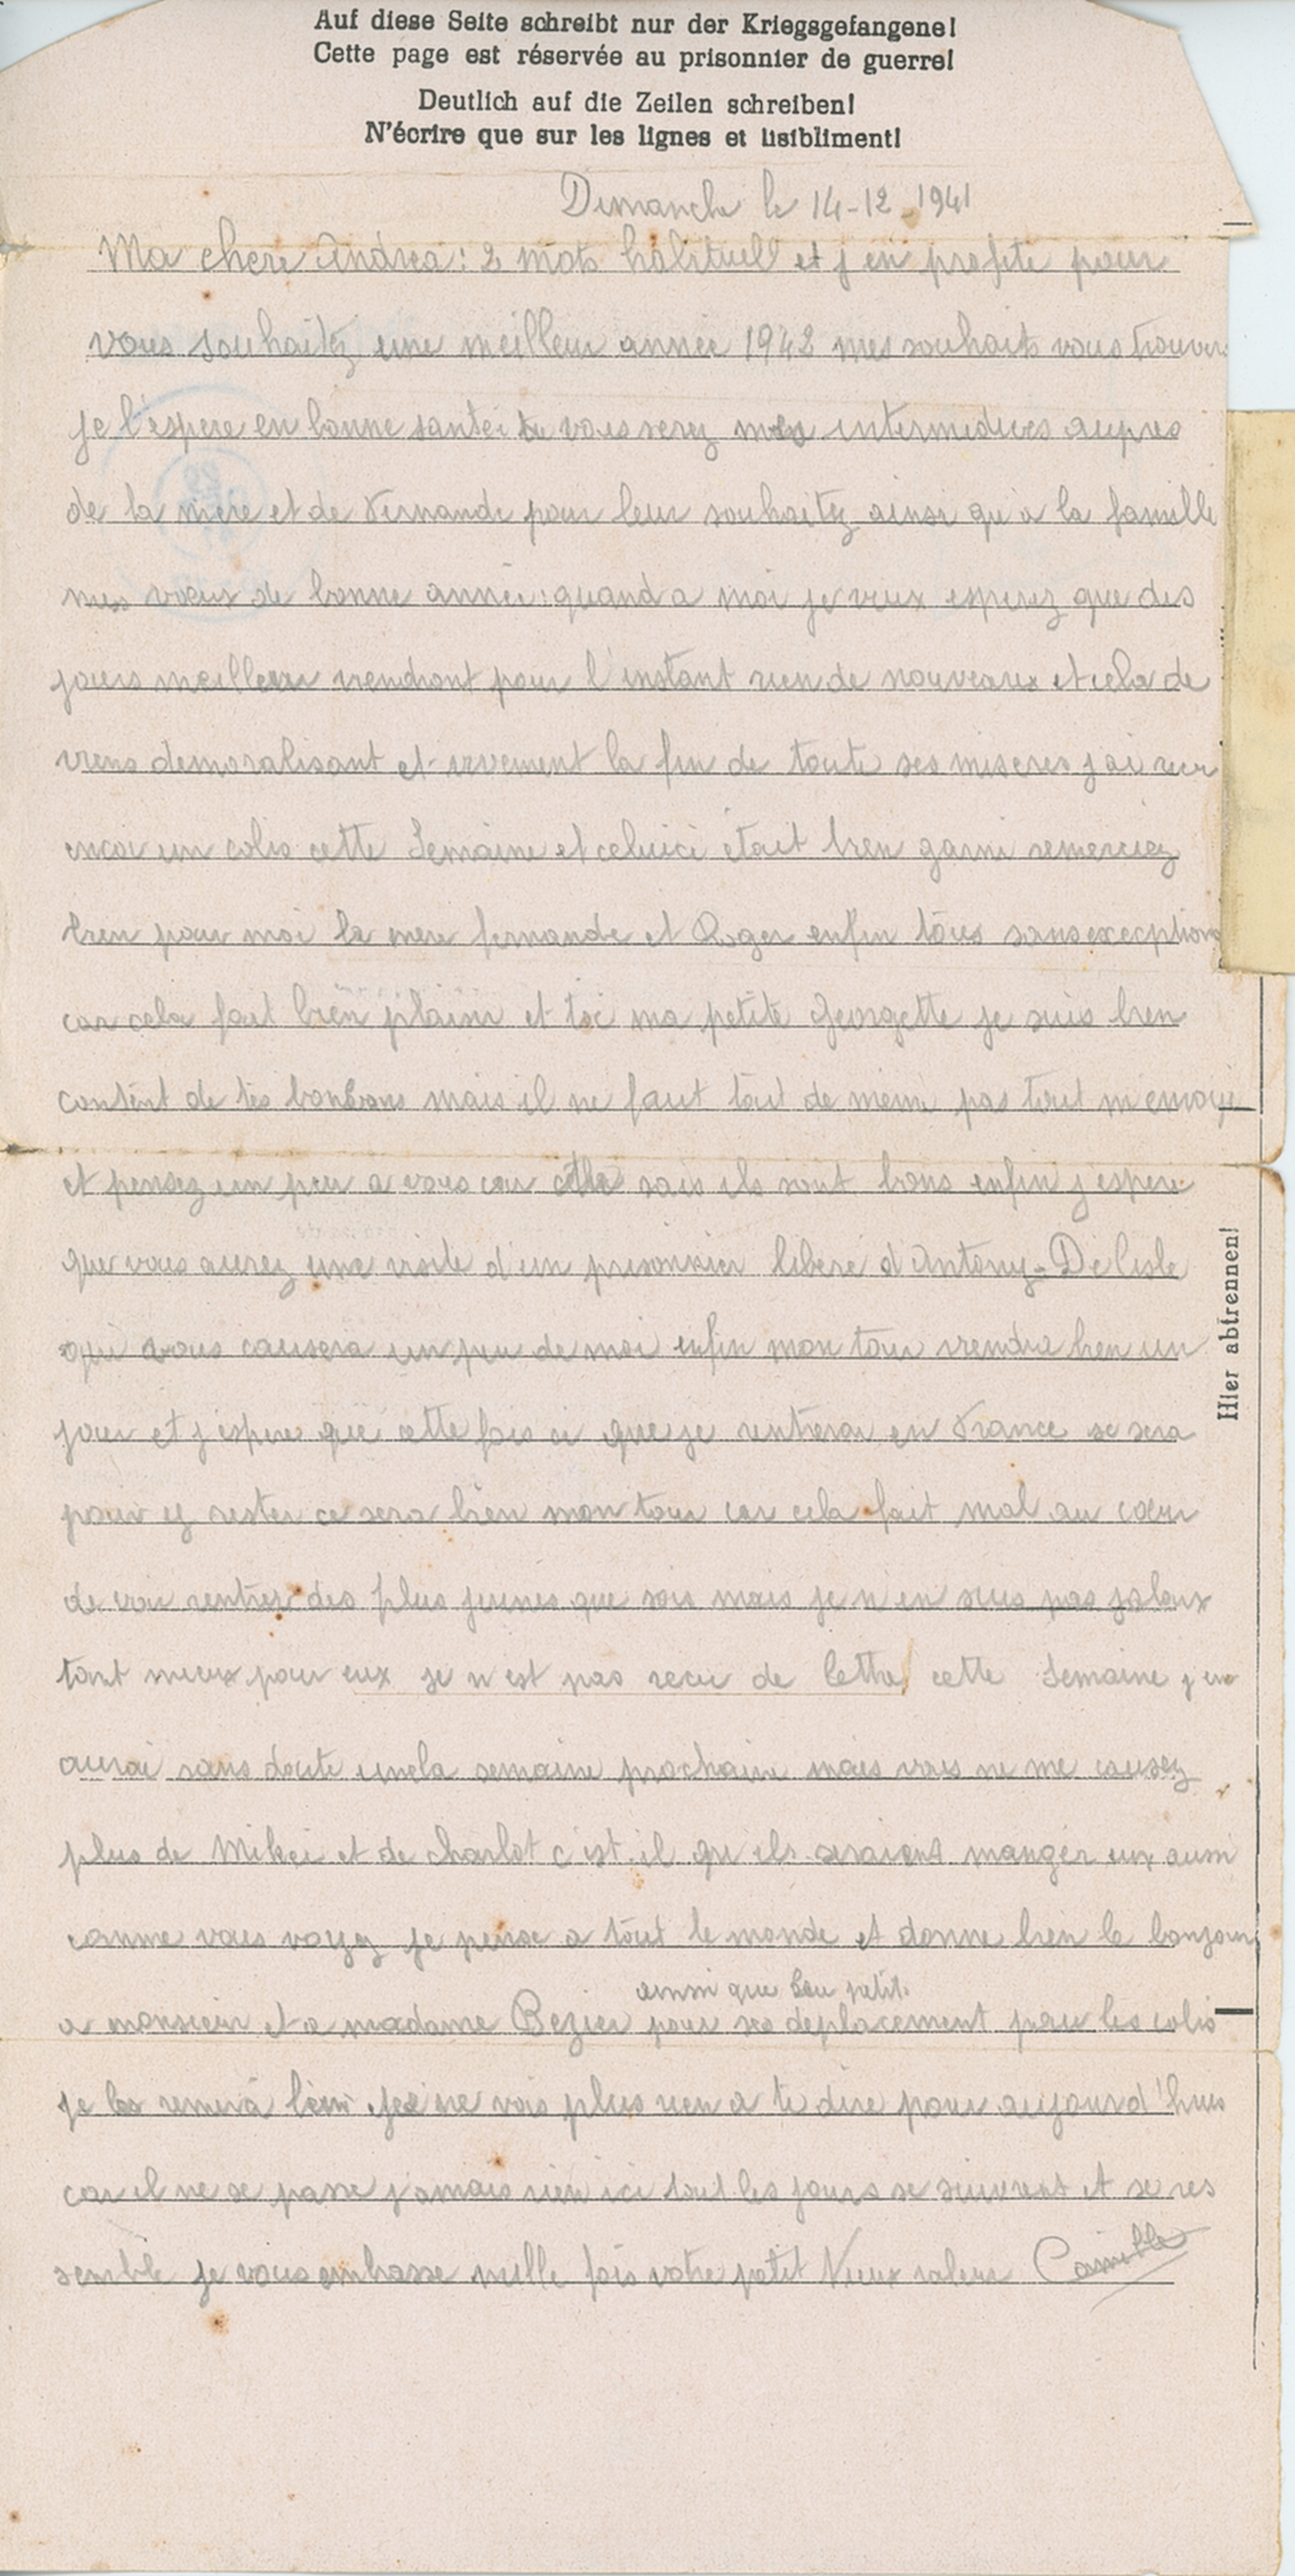 Auf diese Seite schreibt nur der Kriegsgefangene!
Cette page est réservée au prisonnier de guerre!
Deutlich auf die Zeilen schreiben!
N'écrire que sur les lignes et lisibliment!
Dimanche le 14-12-1941
Ma chere Andrea: 2 mots habituell et j en profite pour
vous souhaitez une meilleur année 1942 mes souhaits vous trouver
je l'espere en bonne santei vous serez mes intermediures aupres
de la mere et de Fernande pour leur souhaitez ainsi qu'a la famille
mes vœux de bonne année: quand a moi je veux esperez que des
jours meilleur viendront pour l'instant rien de nouveaux et cela de
viens demoralisant et vivement la fin de toute ses miseres j ai recu
encor un colis cette Semaine et celuici était bien garni remerciez
bien pour moi la mere fernande et Roger enfin tous sans execptions
car cela fait bien plaisir et toi ma petite Georgette je suis bien
content de tes bonbons mais il ne faut tout de meme pas tout m envoye
et pensez un peu a vous car sais ils sont bons enfin j espere
que vous aurez une visite d'un prisonnier libere d'Antony-Delisle
qui vous causera un peu de moi enfin mon tour viendra bien un
jour et j'espere que cette fois ci que je rentrerai en France se sera
pour y rester ce sera bien mon tour car cela fait mal au cœur
de voir rentrer des plus jeunes que sois mais je n'en suis pas jaloux
tant mieux pour eux je n est pas recu de lettre cette Semaine j en
aurai sans doute une la semaine prochaine mais vous ne me causez
plus de Mikei et de charlot c'est-il qu'ils seraient manger eux aussi
comme vous voyez je pense a tout le monde et donne bien le bonjour
ainsi que leur petit.
a monsieur et a madame Bezier pour ses deplacement pour les colis
je les bien je ne vois plus rien a te dire pour aujourd'hui
car il ne se passe jamais rien ici tout les jours se suivent et se res
semble je vous embrasse mille fois votre petit Vieux Camille
Hier abtrennen!